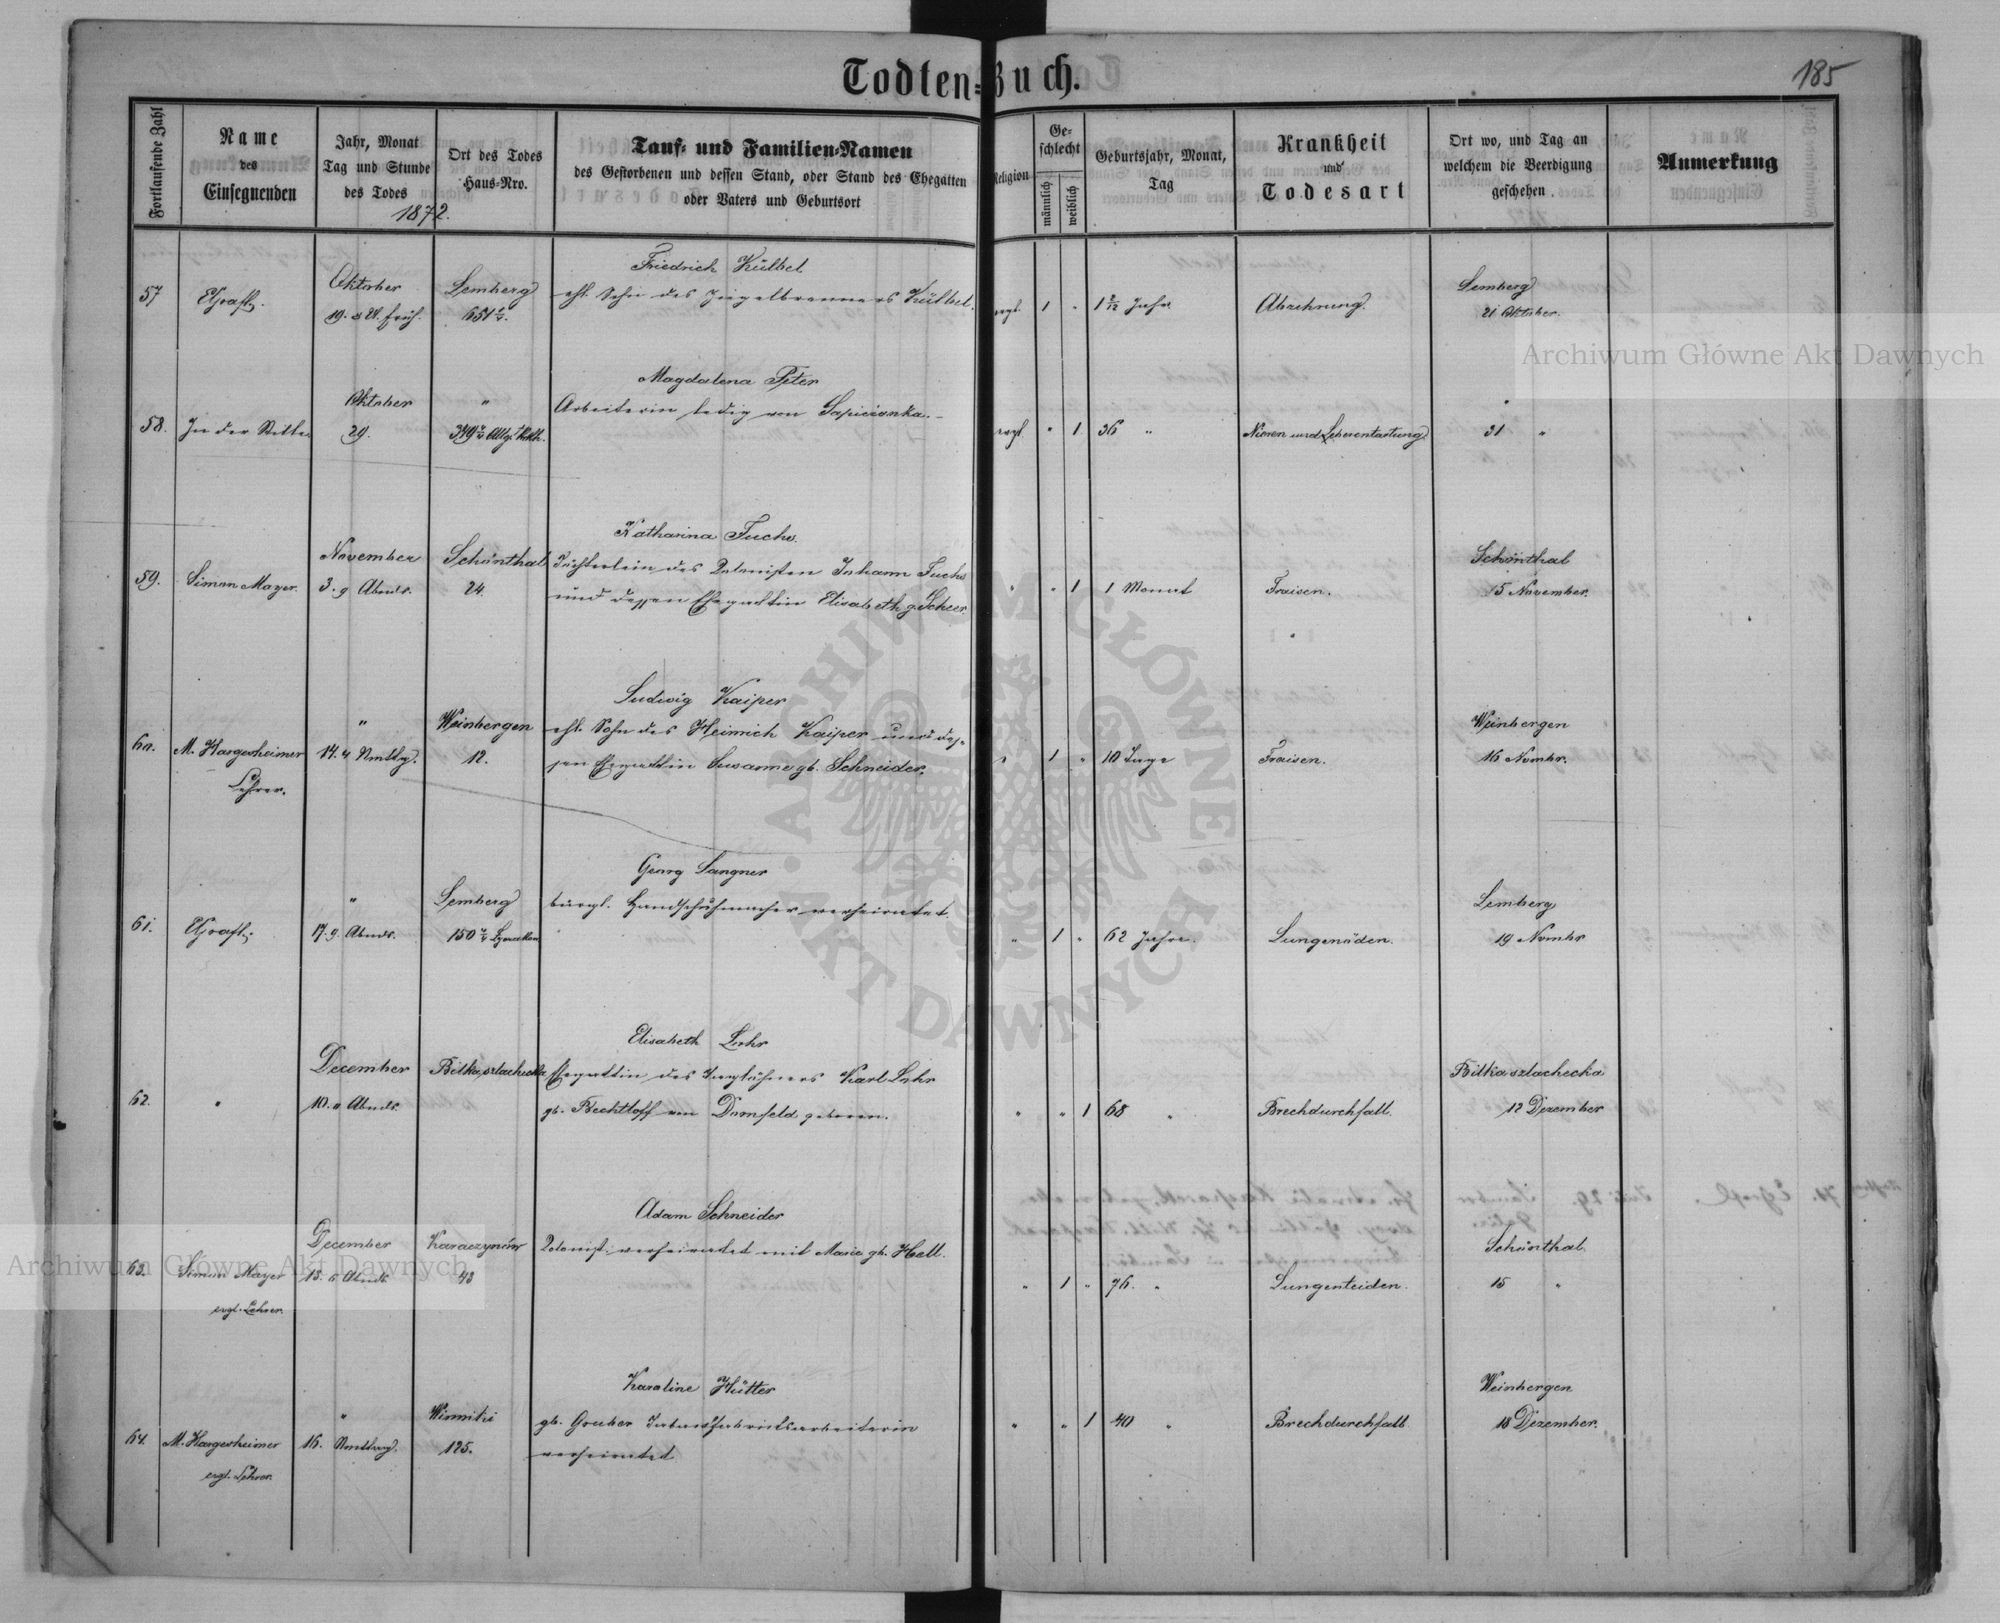 Todten-Buch.
185
Fortlaufende Zahl
Name
des
Einsegnenden
Jahr, Monat
Tag und Stunde
des Todes
1872.
Ort des Todes
Haus-Nro.
Tauf- und Familien-Namen
des Gestorbenen und dessen Stand, oder Stand des Ehegatten
oder Vaters und Geburtsort
Religion
Ge-
schlecht
männlich
weiblich
Geburtsjahr, Monat,
Tag
Krankheit
und
Todesart
Ort wo, und Tag an
welchem die Beerdigung
geschehen.
Anmerkung
57
Oktober
19.
früh.
Lemberg
Friedrich Külbel
ehl. Sohn des Ziegelbrenners Külbel.
evgl.
1
Jahr
Abzehrung.
Lemberg
21 Oktober.
58.
In der Stille
Oktober
29.
"
Allg.
Magdalena Peter
Arbeiterin ledig von Sapiezanka.
evgl.
1
36 "
Nieren und Leberentartung
31 "
59.
Simon Mayer.
November
3. 9 Abends.
Schönthal
24.
Katharina Fuchs.
Töchterlein des Kolonisten Johann Fuchs
und dessen Ehegattin Elisabeth g. Scheer.
1
1 Monat
Fraisen.
Schönthal
5 November.
60.
M. Hargesheimer
Lehrer.
"
14. 4 Nmttg.
Weinbergen
12.
Ludwig Kaiper
ehl. Sohn des Heinrich Kaiper und des-
sen Ehegattin Susanne gb. Schneider.
1
10 Tage
Fraisen.
Weinbergen
16 Novmbr.
61.
"
17. 9. Abends.
Lemberg
Georg Langner
bürgl. Handschuhmacher verheiratet.
1
62 Jahre.
Lungenödem.
Lemberg
19 Novmbr
62.
December
10. Abends.
Bilka szlachecka
Elisabeth Lohr
Ehegattin des Taglöhners Karl Lohr
gb. Bechtloff von Dornfeld geboren.
1
68 "
Brechdurchfall.
Bilka szlachecka
12 Dezember
63.
Simon Mayer
evgl. Lehrer.
December
13. 6 Abends
Karaczynów
43
Adam Schneider
Kolonist, verheiratet mit Marie gb. Hell.
1
76. "
Lungenleiden.
Schönthal
15 "
64.
M. Hargesheimer
evgl. Lehrer.
"
16. Nmttag.
Winniki
125.
Karoline Hütter
gb. Gruber Tabaksfabriksarbeiterin
verheiratet.
1
40 "
Brechdurchfall
Weinbergen
18 Dezember.
Archiwum Główne Akt Dawnych
ARCHIWUM GŁÓWNE AKT DAWNYCH
Archiwum Główne Akt Dawnych